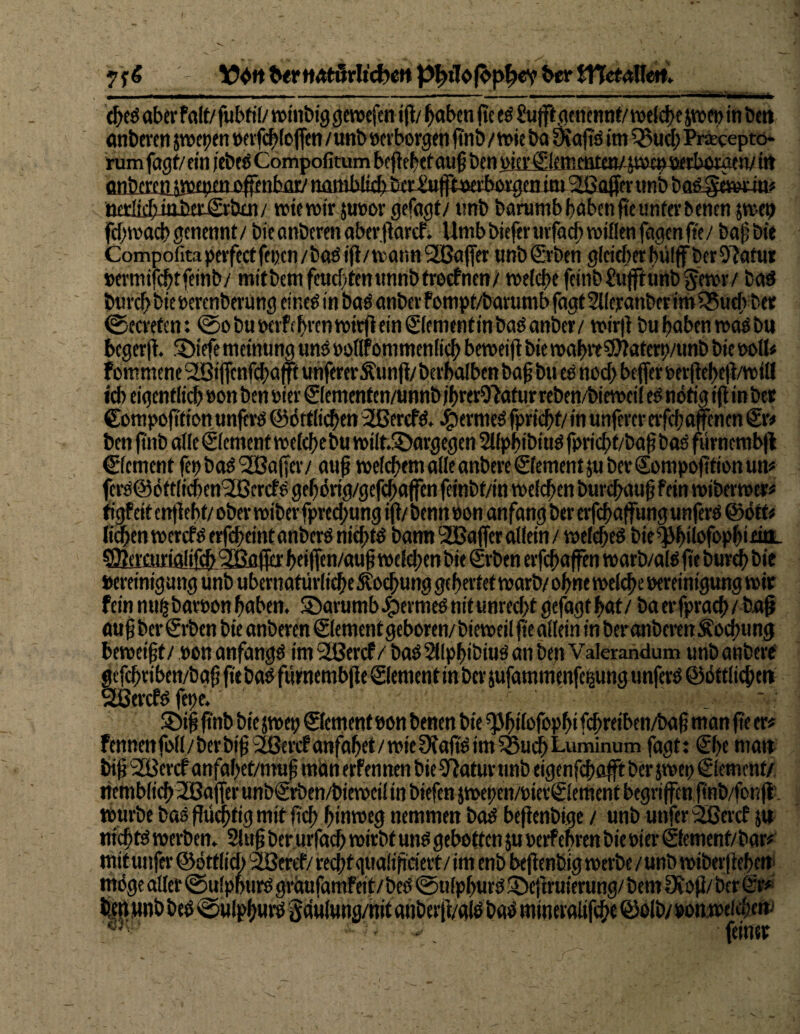 756 Von der natürlichen Philosophey der Metallen.
ches aber kalt/ subtil/ windig gewesen ist/ haben sie es Lufft genennt/ welche zwey in den
anderen zweyen verschlossen / und verborgen sind / wie da Rasis im Buch Præcepto-
rum sagt/ ein jedes Compositum bestehet auß den vier Elementen/ zwey verborgen/ in
anderen zweyen offenbar/ namblich der Lufft verborgen im Wasser und das Fewr in-
nerlich in der Erden / wie wir zuvor gesagt / und darumb haben sie unter denen zwey
schwach genennt / die anderen aber starck. Umb dieser ursach willen sagen sie / daß die
Composita perfect seyen / das ist / wann Wasser und Erden gleicher hülff der Natur
vermischt seind / mit dem feuchten unnd trocknen / welche seind Lufft und Fewr / das
durch die verenderung eines in das ander kompt/darumb sagt Alexander im Buch der
Secreten: So du verkehren wirst ein Element in das ander / wirst du haben was du
begerst. Diese meinung uns vollkommenlich beweist die wahre Matery/und die voll-
kommene Wissenschafft unserer Kunst/ derhalben daß du es noch besser verstehest/will
ich eigentlich von den vier Elementen/unnd ihrer Natur reden/dieweil es nötig ist in der
Composition unsers Göttlichen Wercks. Hermes spricht/ in unserer erschaffenen Er-
den sind alle Element welche du wilt. Dargegen Alphidius spricht/daß das fürnembst
Element sey das Wasser / auß welchem alle andere Element zu der Composition un-
sers Göttlichen Wercks gehörig/geschaffen seindt/in welchen durchauß kein widerwer-
tigkeit ensteht/ oder widersprechung ist/ denn von anfang der erschaffung unsers Gött-
lichen wercks erscheint anders nichts dann Wasser allein / welches die Philosophi ein
Mercurialisch Wasser heissen/auß welchen die Erden erschaffen ward/als sie durch die
vereinigung und ubernatürliche Kochung gehertet ward/ ohne welche vereinigung wir
kein nutz darvon haben. Darumb Hermes nit unrecht gesagt hat / da er sprach / daß
auß der Erden die anderen Element geboren/ dieweil sie allein in der anderen Kochung
beweißt / von anfangs im Werck / das Alphidius an den Valerandum und andere
geschriben/daß sie das fürnembste Element in der zusammensetzung unsers Göttlichen
Wercks seye.
Diß sind die zwey Element von denen die Philosophi schreiben/daß man sie er-
kennen soll / der diß Werck anfahet / wie Rasis im Buch Luminum sagt: Ehe man
diß Werck anfahet/muß man erkennen die Natur und eigenschafft der zwey Element/
nemblich Wasser und Erden/dieweil in diesen zweyen/vier Element begriffen sind/sonst
wurde das flüchtig mit sich hinweg nemmen das bestendige / und unser Werck zu
nichts werden. Auß der ursach wirdt uns gebotten zu verkehren die vier Element/dar-
mit unser Göttlich Werck/ recht qualificiert / im end bestendig werde / und widerstehen
möge aller Sulphurs grausamkeit / des Sulphurs Destruierung/ dem Rost/ der Er-
den und des Sulphurs Fäulung/nit anderst/als das mineralische Gold/ von welchen
seiner